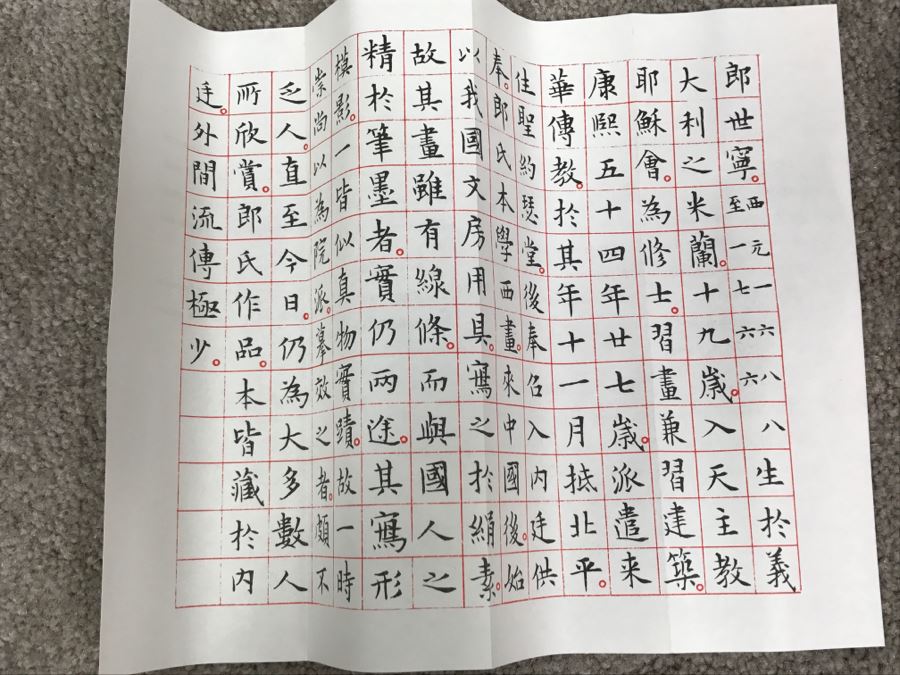 郎世寧。西元一六八八至一七六六生於義
大利之米蘭。十九歲。入天主教
耶穌會。為修士。習畫兼習建築。
康熙五十四年廿七歲。派遣来
華傳教。於其年十一月抵北平。
住聖約瑟堂。後奉召入内廷供
奉。郎氏本學西畫。來中國後。始
以我國文房用具。寫之於絹素。
故其畫雖有線條。而與國人之
精於筆墨者。實仍兩途。其寫形
模影。一皆似真物實蹟。故一時
崇尚以為院派。摹效之者。頗不
乏人。直至今日。仍為大多數人
所欣賞。郎氏作品。本皆藏於内
廷。外間流傳極少。